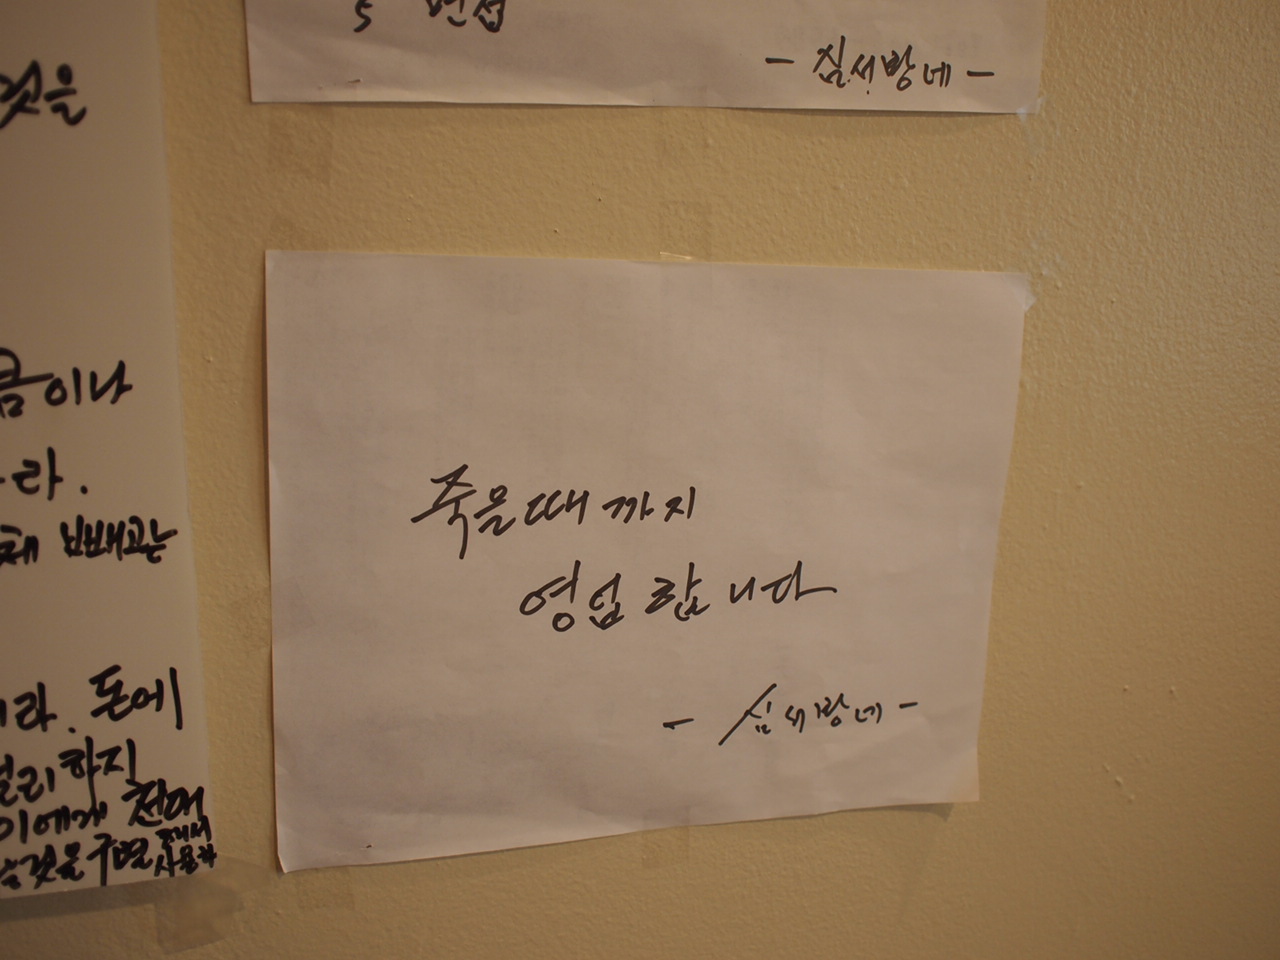 5 면접
- 심서방네 -
것을
이나
라.
빼고는
라. 돈에
하지
이에게 천대
것을 구별
죽을때 까지
영업 합니다
- 심서방네 -